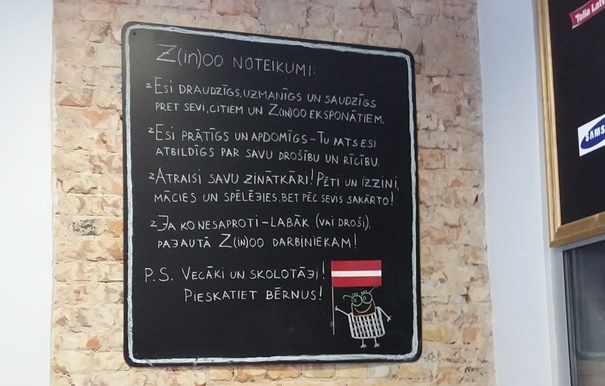 Z(IN)OO NOTEIKUMI:
ESI DRAUDZĪGS, UZMANĪGS UN SAUDZĪGS
PRET SEVI, CITIEM UN Z(IN)OO EKSPONĀTIEM.
ESI PRĀTĪGS UN APDOMĪGS – TU PATS ESI
ATBILDĪGS PAR SAVU DROŠĪBU UN RĪCĪBU.
ATRAISI SAVU ZINĀTKĀRI! PĒTI UN IZZINI,
MĀCIES UN SPĒLĒJIES, BET PĒC SEVIS SAKĀRTO!
JA KO NESAPROTI – LABĀK (VAI DROŠI),
PAJAUTĀ Z(IN)OO DARBINIEKAM!
P.S. VECĀKI UN SKOLOTĀJI!
PIESKATIET BĒRNUS!
Telia Latv
SAMS